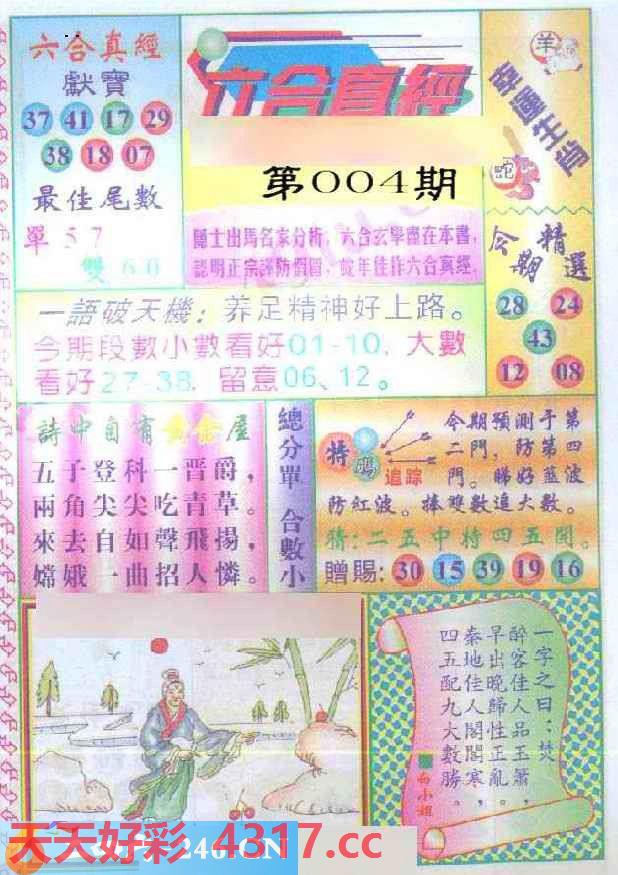 六合真經
獻寶
37 41 17 29
38 18 07
最佳尾數
單 5 7
雙 6 0
六合真經
第004期
隱士出馬名家分析，六合玄學盡在本書，
認明正宗謹防假冒，蛇年佳作六合真經，
羊
幸運生肖
蛇
今期精選
28 24
43
12 08
一語破天機：养足精神好上路。
今期段數小數看好01-10，大數
看好27-38，留意06、12。
詩中自有黃金屋
五子登科一晋爵，
兩角尖尖吃青草。
來去自如聲飛揚，
嫦娥一曲招人憐。
總分單 合數小
特
追踪
今期預測于第
二門，防第四
門。睇好蓝波
防紅波。捧雙數追大數。
猜：二五中特四五開。
贈賜：30 15 39 19 16
一字之曰：焚
醉客佳人品玉簫，
早出晚歸性正亂。
秦地佳人閣閣寒，
四五配九大數勝。
白小姐
天天好彩 4317.cc
246.CN